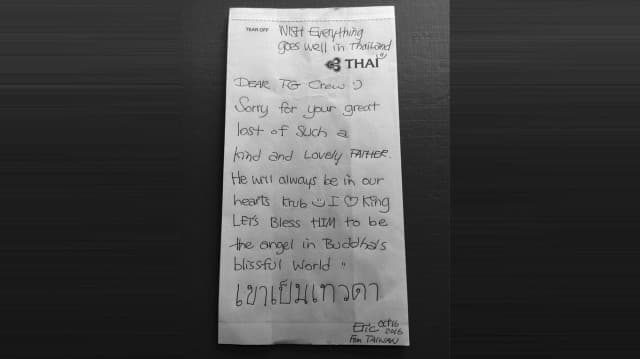 TEAR OFF
WISH EVERYthing
goes well in Thailand
THAI
DEAR TG Crew :)
Sorry for your great
lost of Such a
kind and Lovely FATHER.
He will always be in our
hearts krub I ♡ King
LET's Bless HIM to be
the angel in Buddha's
blissful World "
เขาเป็นเทวดา
Eric Oct 16
2016
From TAIWAN